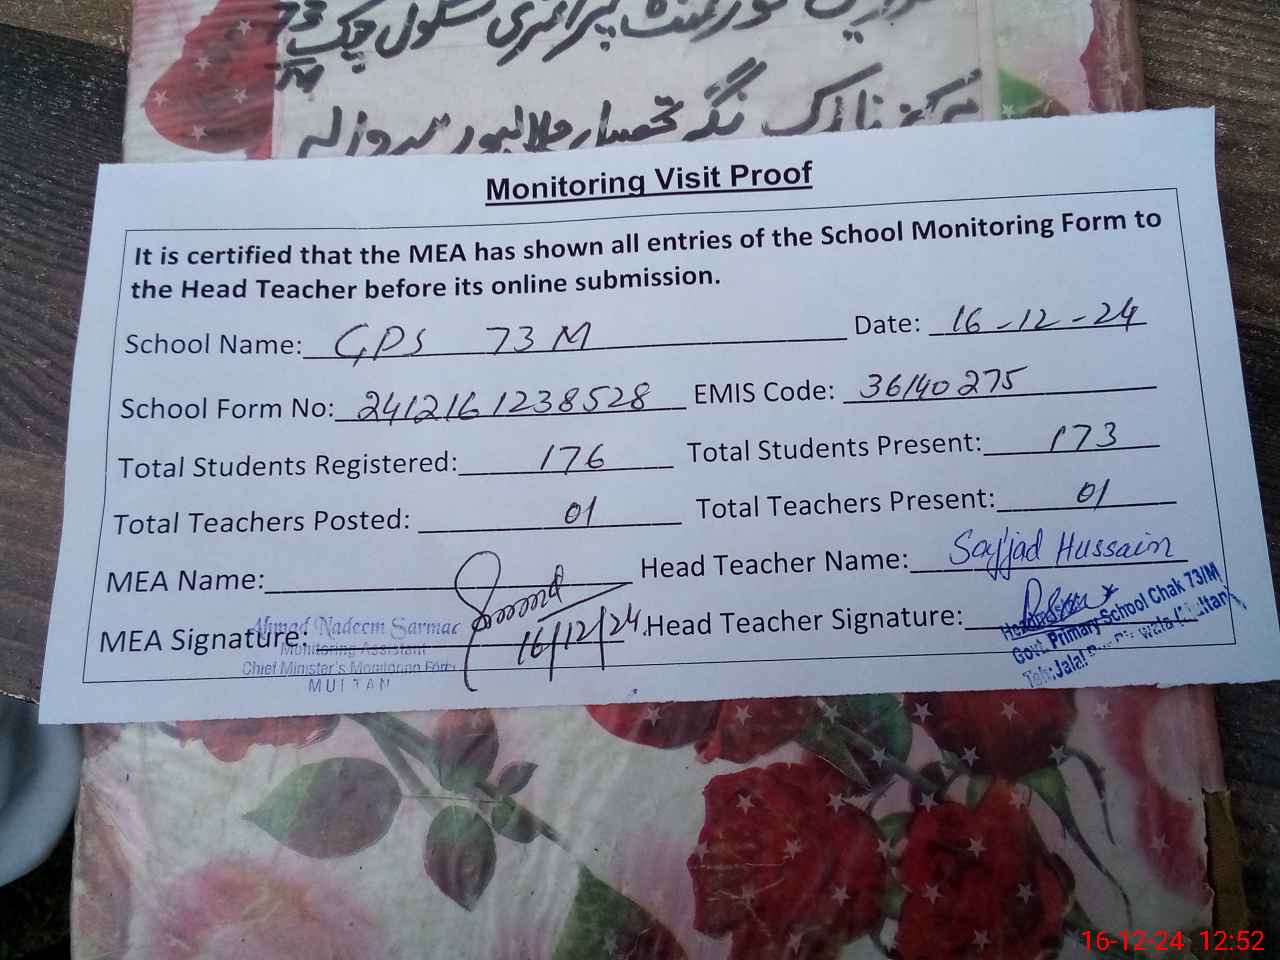 گورنمنٹ پرائمری سکول چک 73
M
مرکز نازک نگر تحصیل جلالپور پیروالہ
Monitoring Visit Proof
It is certified that the MEA has shown all entries of the School Monitoring Form to
the Head Teacher before its online submission.
School Name: GPS 73 M Date: 16-12-24
School Form No: 2412161238528 EMIS Code: 36140275
Total Students Registered: 176 Total Students Present: 173
Total Teachers Posted: 01 Total Teachers Present: 01
MEA Name: Head Teacher Name: Sajjad Hussain
MEA Signature: 16/12/24. Head Teacher Signature:
Ahmad Nadeem Sarmad
Monitoring Assistant
Chief Minister's Monitoring Force
MULTAN
Headmaster
Govt. Primary School Chak 73/M
Teh: Jalal Pur Pirwala (Multan)
16-12-24 12:52